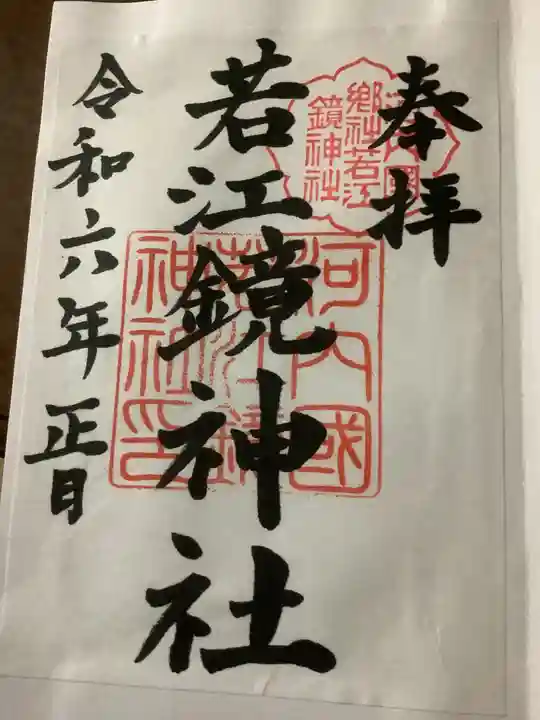 奉拝
河内國
郷社若江
鏡神社
若江鏡神社
河内國
若江鏡
神社印
令和六年正日